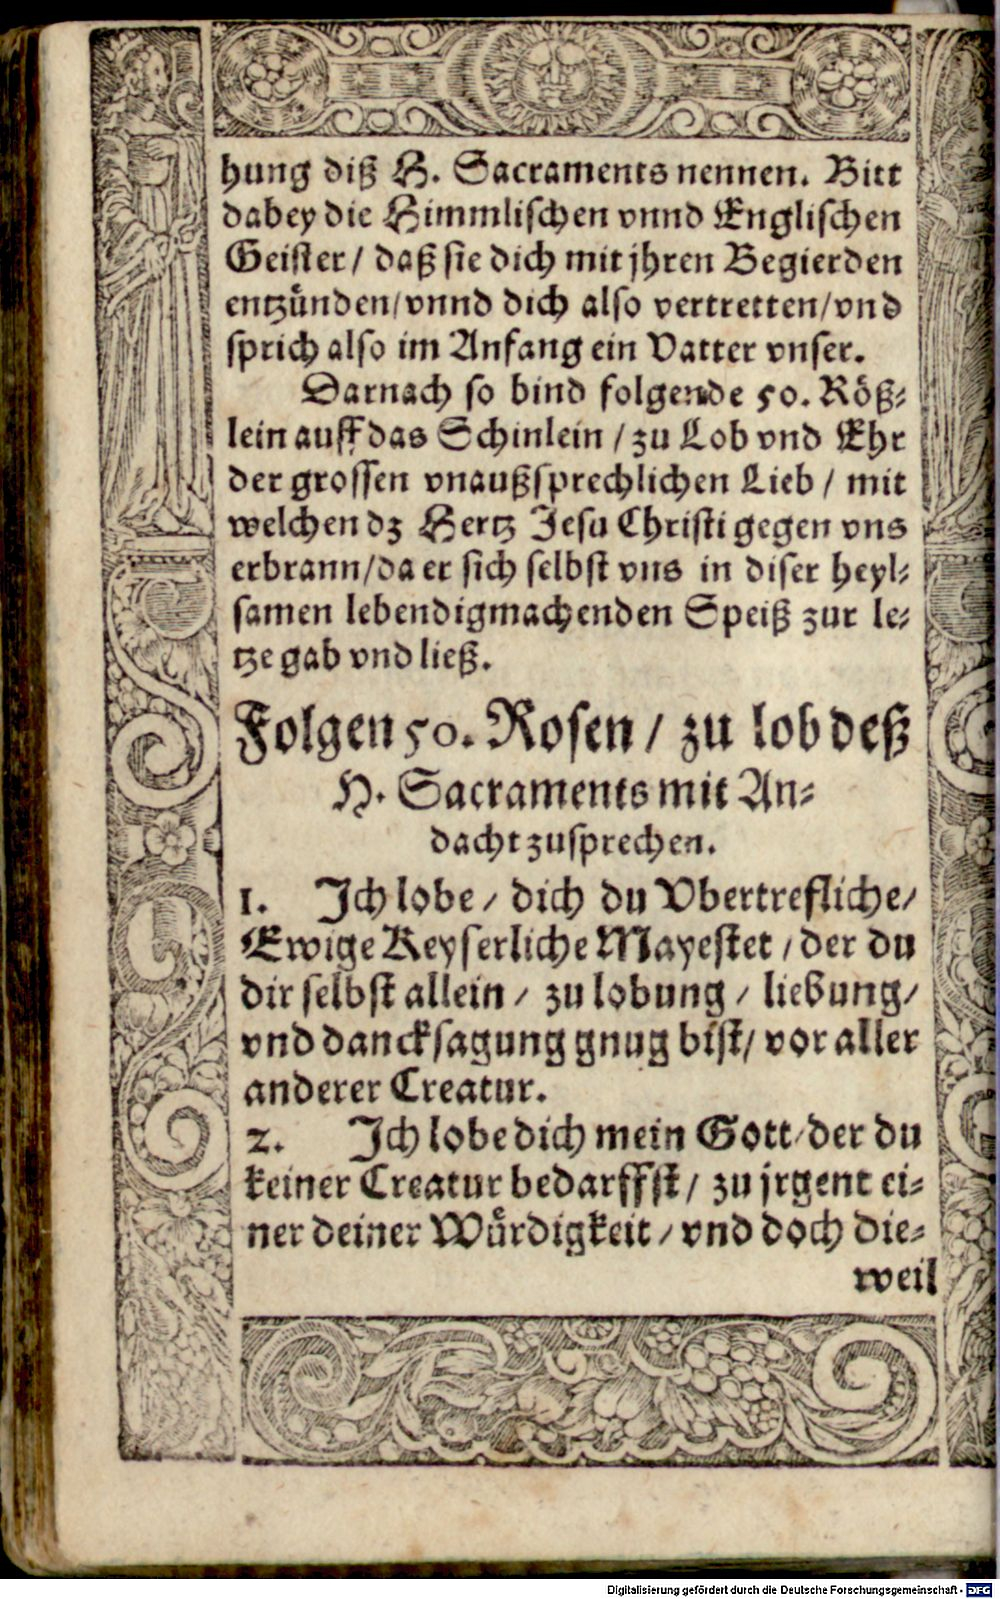 hung diß H. Sacraments nennen. Bitt
dabey die Himmlischen vnnd Englischen
Geister / daß sie dich mit jhren Begierden
entzünden / vnnd dich also vertretten / vnd
sprich also im Anfang ein Vatter vnser.
Darnach so bind folgende 50. Röß⸗
lein auff das Schinlein / zu Lob vnd Ehr
der grossen vnaußsprechlichen Lieb / mit
welchen dz Hertz Jesu Christi gegen vns
erbrann / da er sich selbst vns in diser heyl⸗
samen lebendigmachenden Speiß zur le⸗
tze gab vnd ließ.
Folgen 50. Rosen / zu lob deß
H. Sacraments mit An⸗
dacht zusprechen.
1. Ich lobe / dich du Vbertrefliche /
Ewige Keyserliche Mayestet / der du
dir selbst allein / zu lobung / liebung /
vnd dancksagung gnug bist / vor aller
anderer Creatur.
2. Ich lobe dich mein Gott / der du
keiner Creatur bedarffst / zu jrgent ei⸗
ner deiner Würdigkeit / vnd doch die⸗
weil
Digitalisierung gefördert durch die Deutsche Forschungsgemeinschaft - DFG